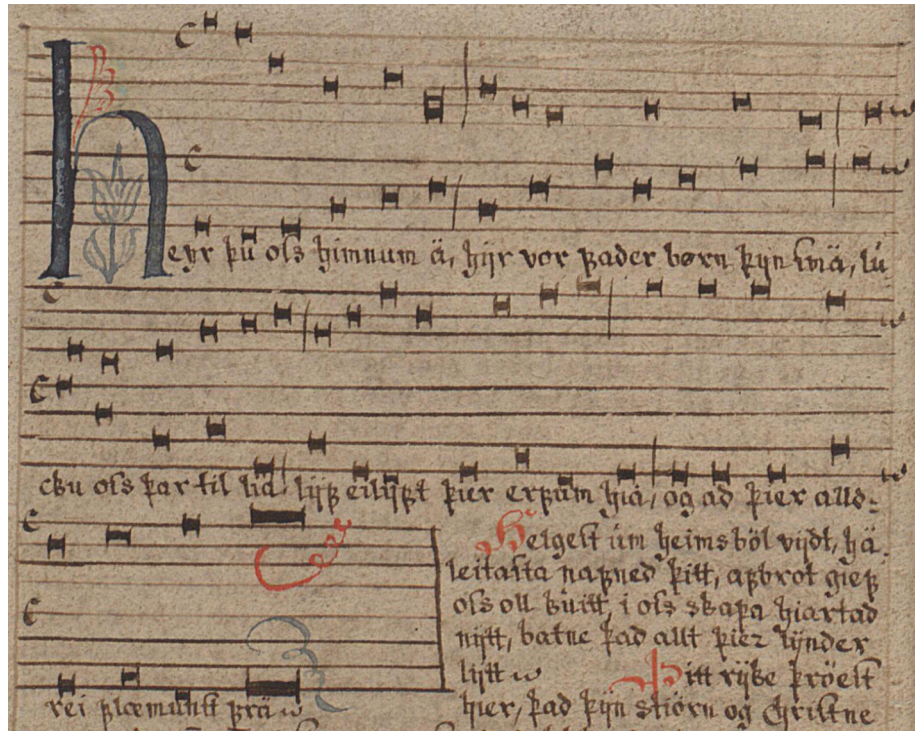 Heyr þu oss himnum ä, hyr vor fader børn þyn smä, lu
cku oss þar til liä, lijf eilijft þier erfum hiä, og ad þier alld-
rei flæmunst frä
Helgest um heimsból vijdt, hä
leitasta nafned þitt, afbrot gief
oss oll kuitt, i oss skapa hiartad
nijtt, batne þad allt þier lynder
lijtt
Þitt rijke þróest
hier, þad þijn stiörn og Christne